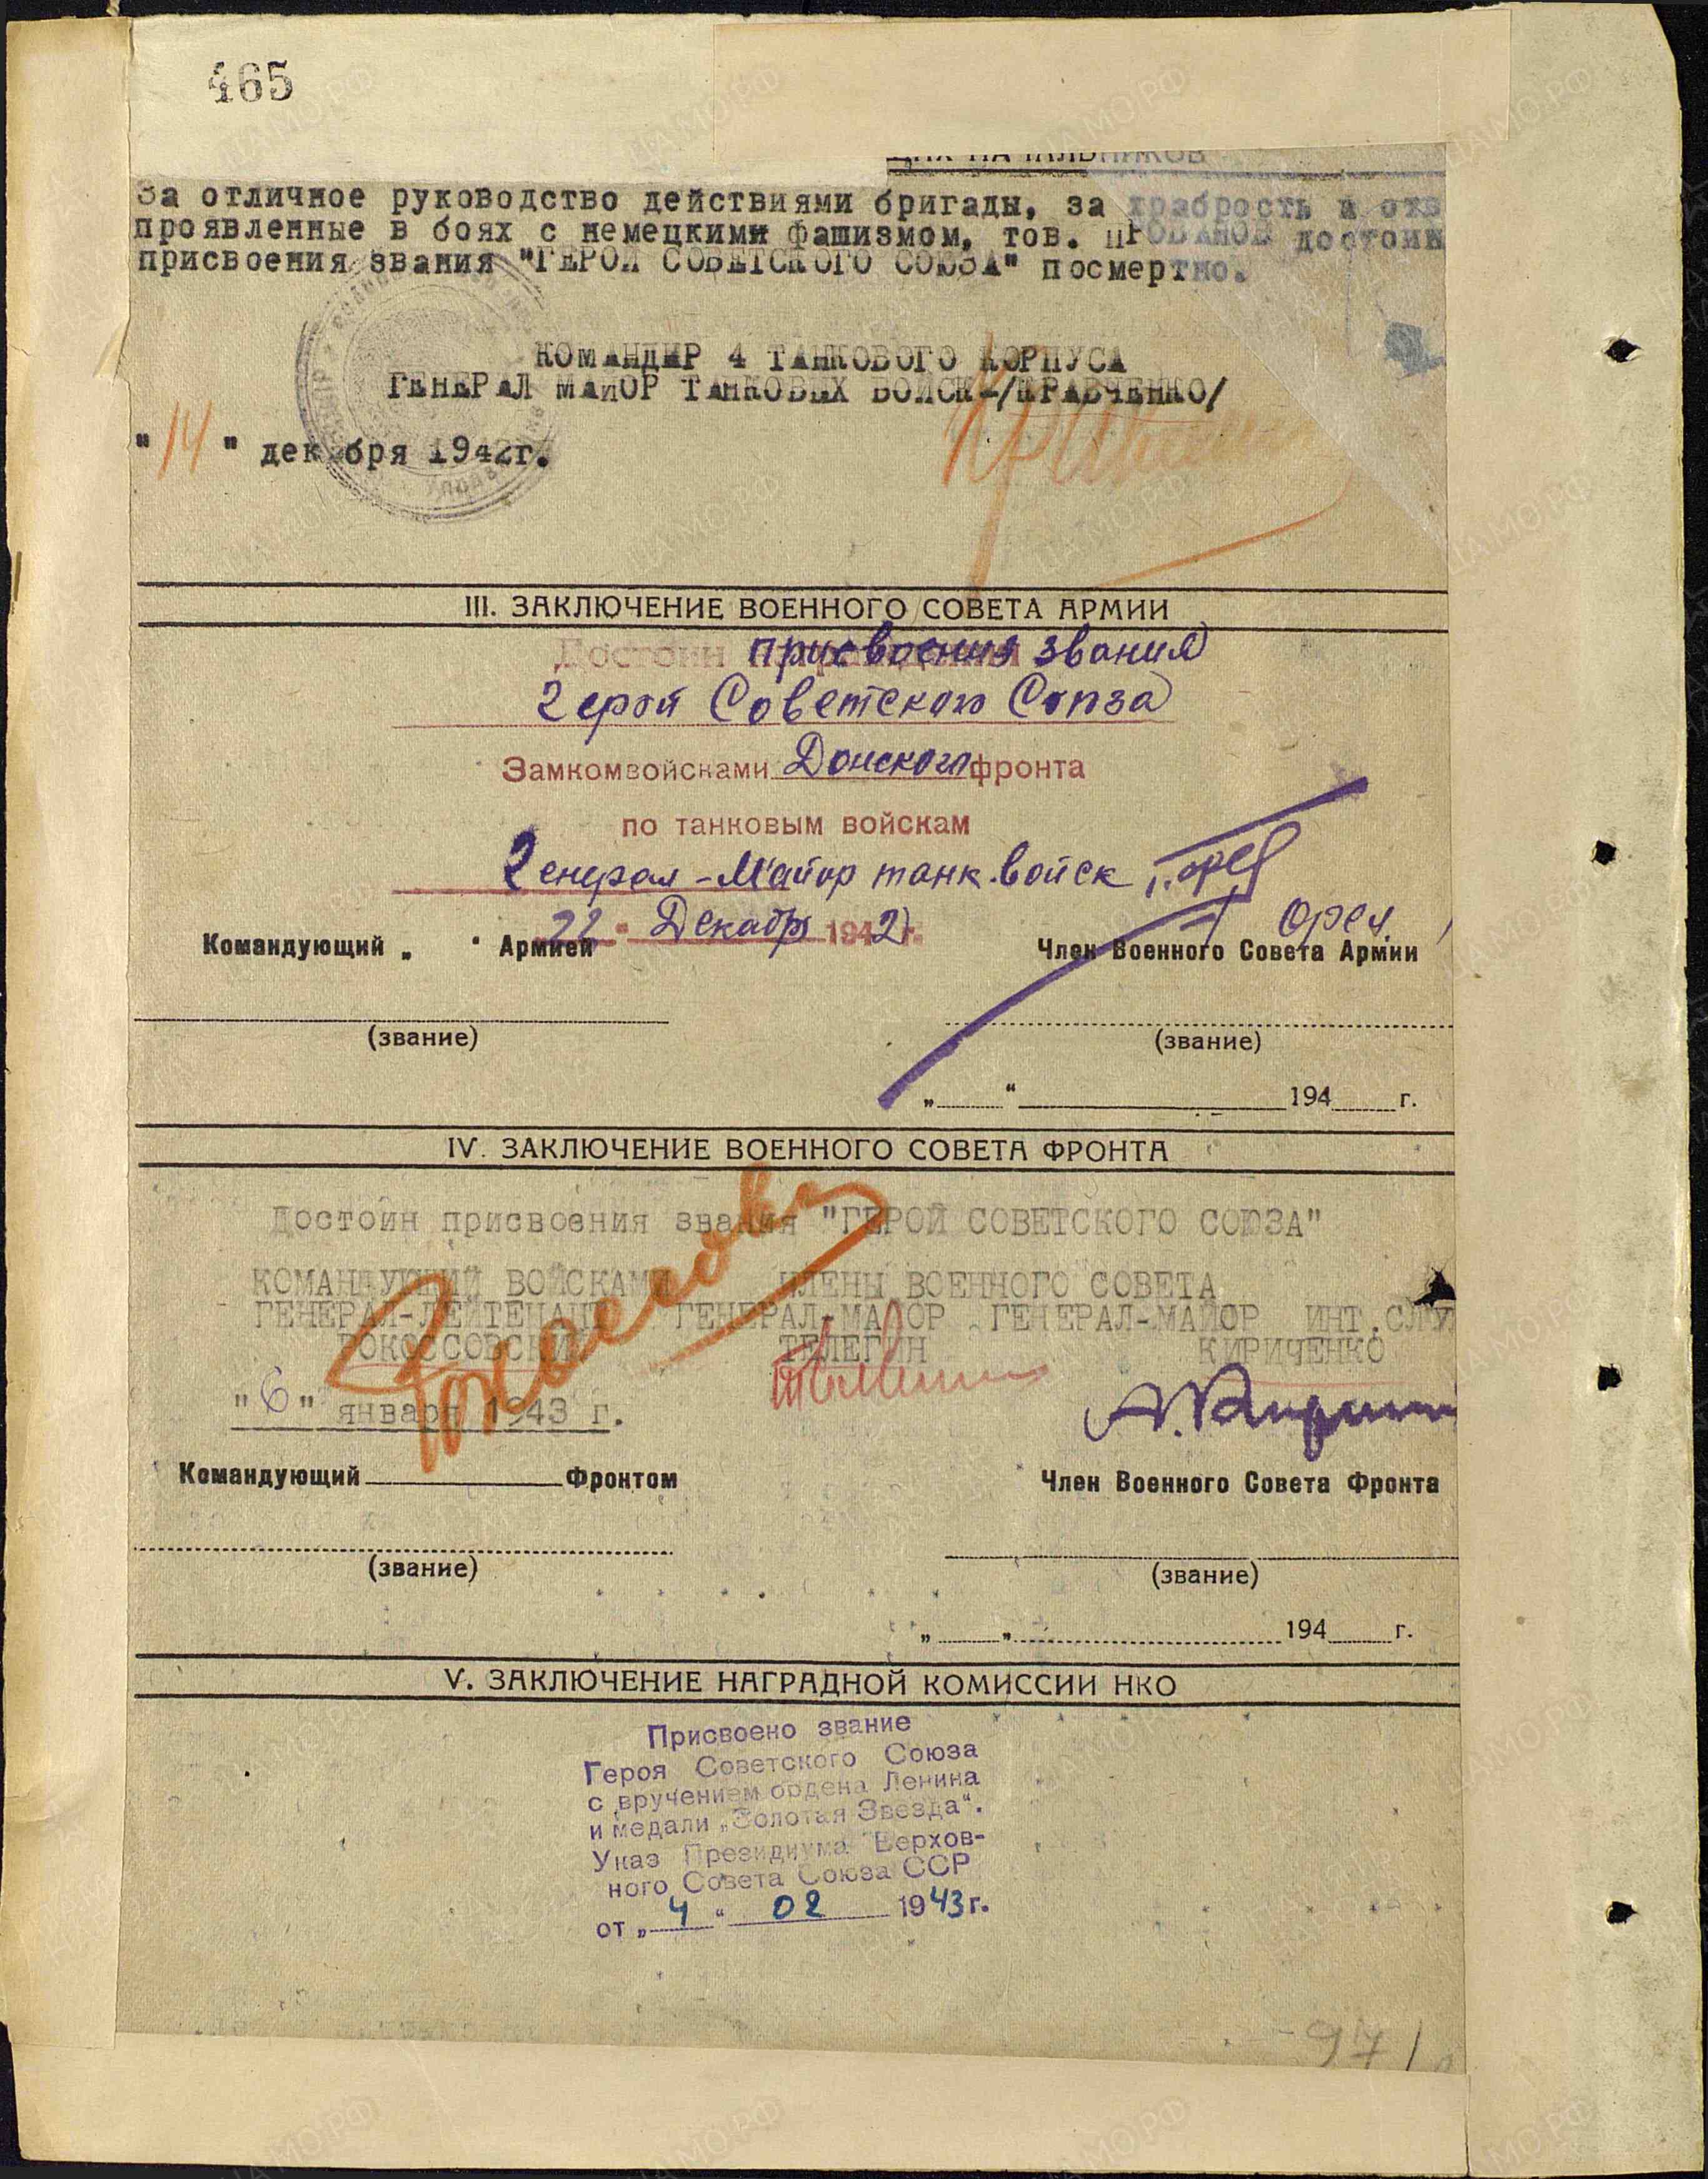 465
За отличное руководство действиями бригады, за храбрость и отв
проявленные в боях с немецкими фашизмом, тов. достоин
присвоения звания "ГЕРОЙ СОВЕТСКОГО СОЮЗА" посмертно.
КОМАНДИР 4 ТАНКОВОГО КОРПУСА
ГЕНЕРАЛ МАЙОР ТАНКОВЫХ ВОЙСК-/КРАВЧЕНКО/
"14" декабря 1942г.
III. ЗАКЛЮЧЕНИЕ ВОЕННОГО СОВЕТА АРМИИ
Достоин присвоения звания
Герой Советского Союза
Замкомвойсками Донского фронта
по танковым войскам
Генерал-Майор танк.войск
"22" Декабр 1942 г.
Орел.
Командующий „ " Армией
Член Военного Совета Армии
(звание)
(звание)
„ " 194 г.
IV. ЗАКЛЮЧЕНИЕ ВОЕННОГО СОВЕТА ФРОНТА
Достоин присвоения звания "ГЕРОЙ СОВЕТСКОГО СОЮЗА"
КОМАНДУЮЩИЙ ВОЙСКАМИ ЧЛЕНЫ ВОЕННОГО СОВЕТА
ГЕНЕРАЛ-ЛЕЙТЕНАНТ ГЕНЕРАЛ-МАЙОР ГЕНЕРАЛ-МАЙОР ИНТ.СЛУ
РОКОССОВСКИЙ ТЕЛЕГИН КИРИЧЕНКО
"6" января 1943 г.
Командующий Фронтом
Член Военного Совета Фронта
(звание)
(звание)
„ „ 194 г.
V. ЗАКЛЮЧЕНИЕ НАГРАДНОЙ КОМИССИИ НКО
Присвоено звание
Героя Советского Союза
с вручением ордена Ленина
и медали „Золотая Звезда".
Указ Президиума Верхов-
ного Совета Союза ССР
от „4" 02 1943г.